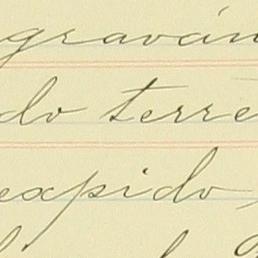 graván
do terre
expido,